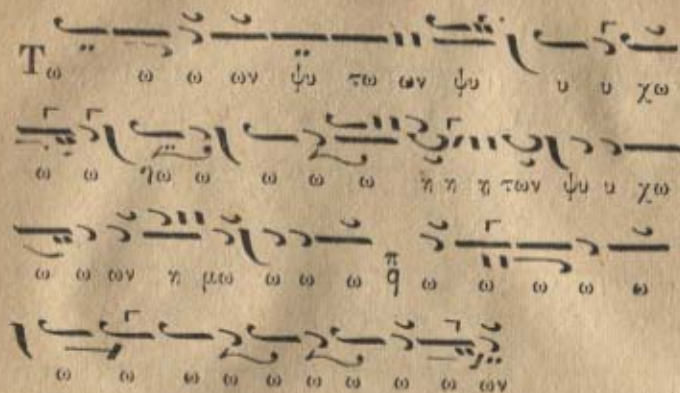 Τω ω ω ων ψυ τω ων ψυ υ υ χω
ω ω ηω ω ω ω ω η η η των ψυ υ χω
ω ω ων η μω ω ω ω π q ω ω ω ω ω
ω ω ω ω ω ω ω ω ω ων